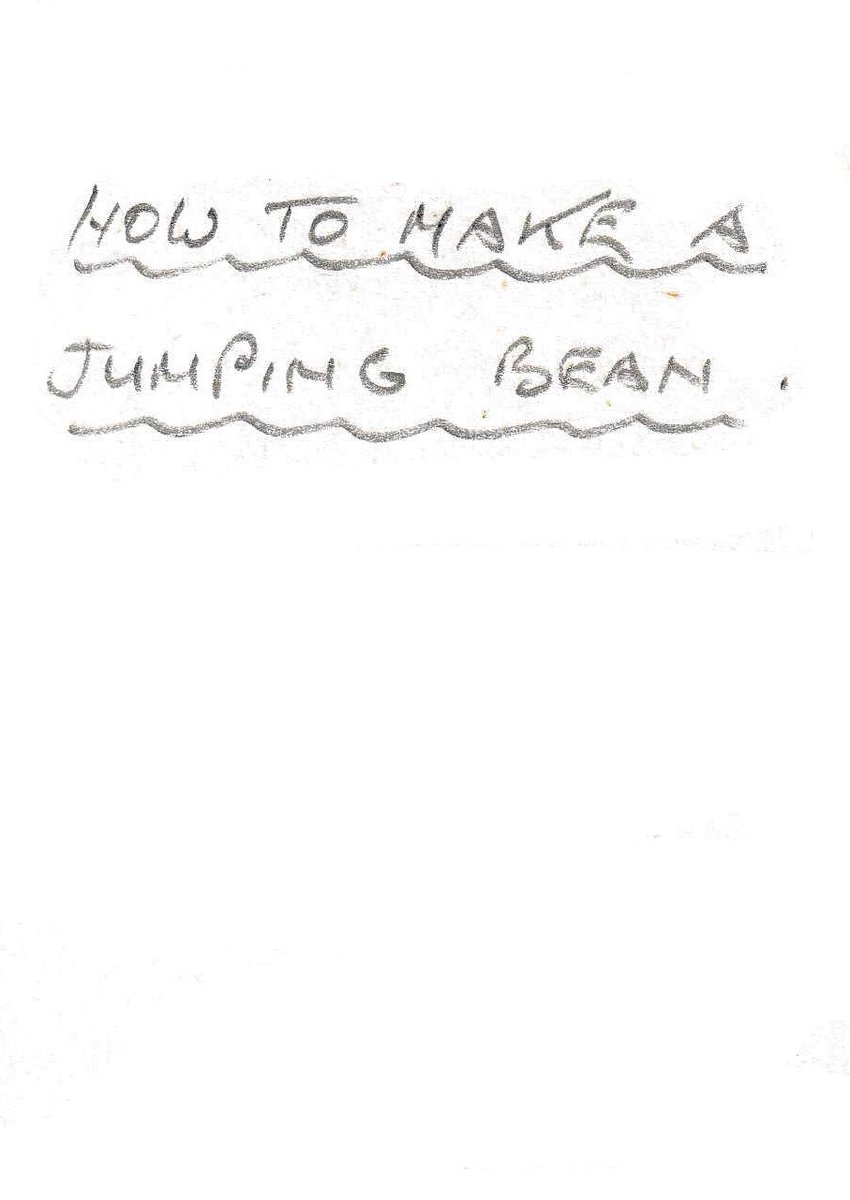 HOW TO MAKE A
JUMPING BEAN.